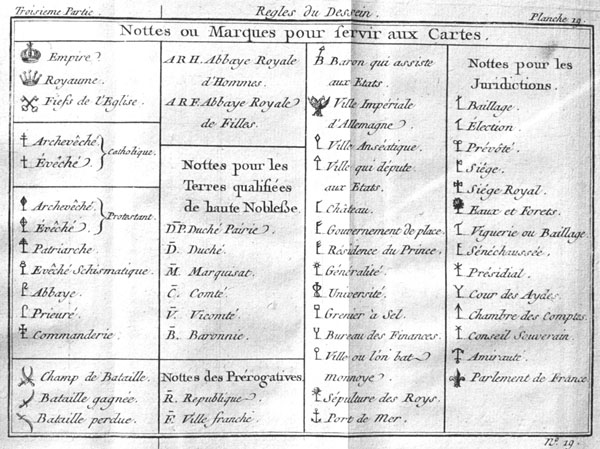 Troisieme Partie.
Regles du Dessein.
Planche 19.
Nottes ou Marques pour servir aux Cartes.
Empire.
Royaume.
Fiefs de l'Eglise.
Archevêché
Évêché
Catholique.
Archevêché
Évêché
Protestant.
Patriarche.
Evêché Schismatique.
Abbaye.
Prieuré.
Commanderie.
Champ de Bataille.
Bataille gagnée.
Bataille perdue.
ARH. Abbaye Royale
d'Hommes.
ARF. Abbaye Royale
de Filles.
Nottes pour les
Terres qualifiées
de haute Noblesse.
D.P. Duché Pairie.
D. Duché.
M. Marquisat.
C. Comté.
V. Vicomté.
B. Baronnie.
Nottes des Prérogatives.
R. Republique.
F. Ville franche.
B Baron qui assiste
aux Etats.
Ville Impériale
d'Allemagne.
Ville Anséatique.
Ville qui députe
aux Etats.
Château.
Gouvernement de place.
Résidence du Prince.
Généralité.
Université.
Grenier à Sel.
Bureau des Finances.
Ville ou l'on bat
monnoye.
Sépulture des Roys.
Port de Mer.
Nottes pour les
Juridictions.
Baillage.
Élection.
Prévôté.
Siége.
Siége Royal.
Eaux et Forets.
Viguerie ou Baillage.
Sénéchaussée.
Présidial.
Cour des Aydes.
Chambre des Comptes.
Conseil Souverain.
Amirauté.
Parlement de France.
No. 19.